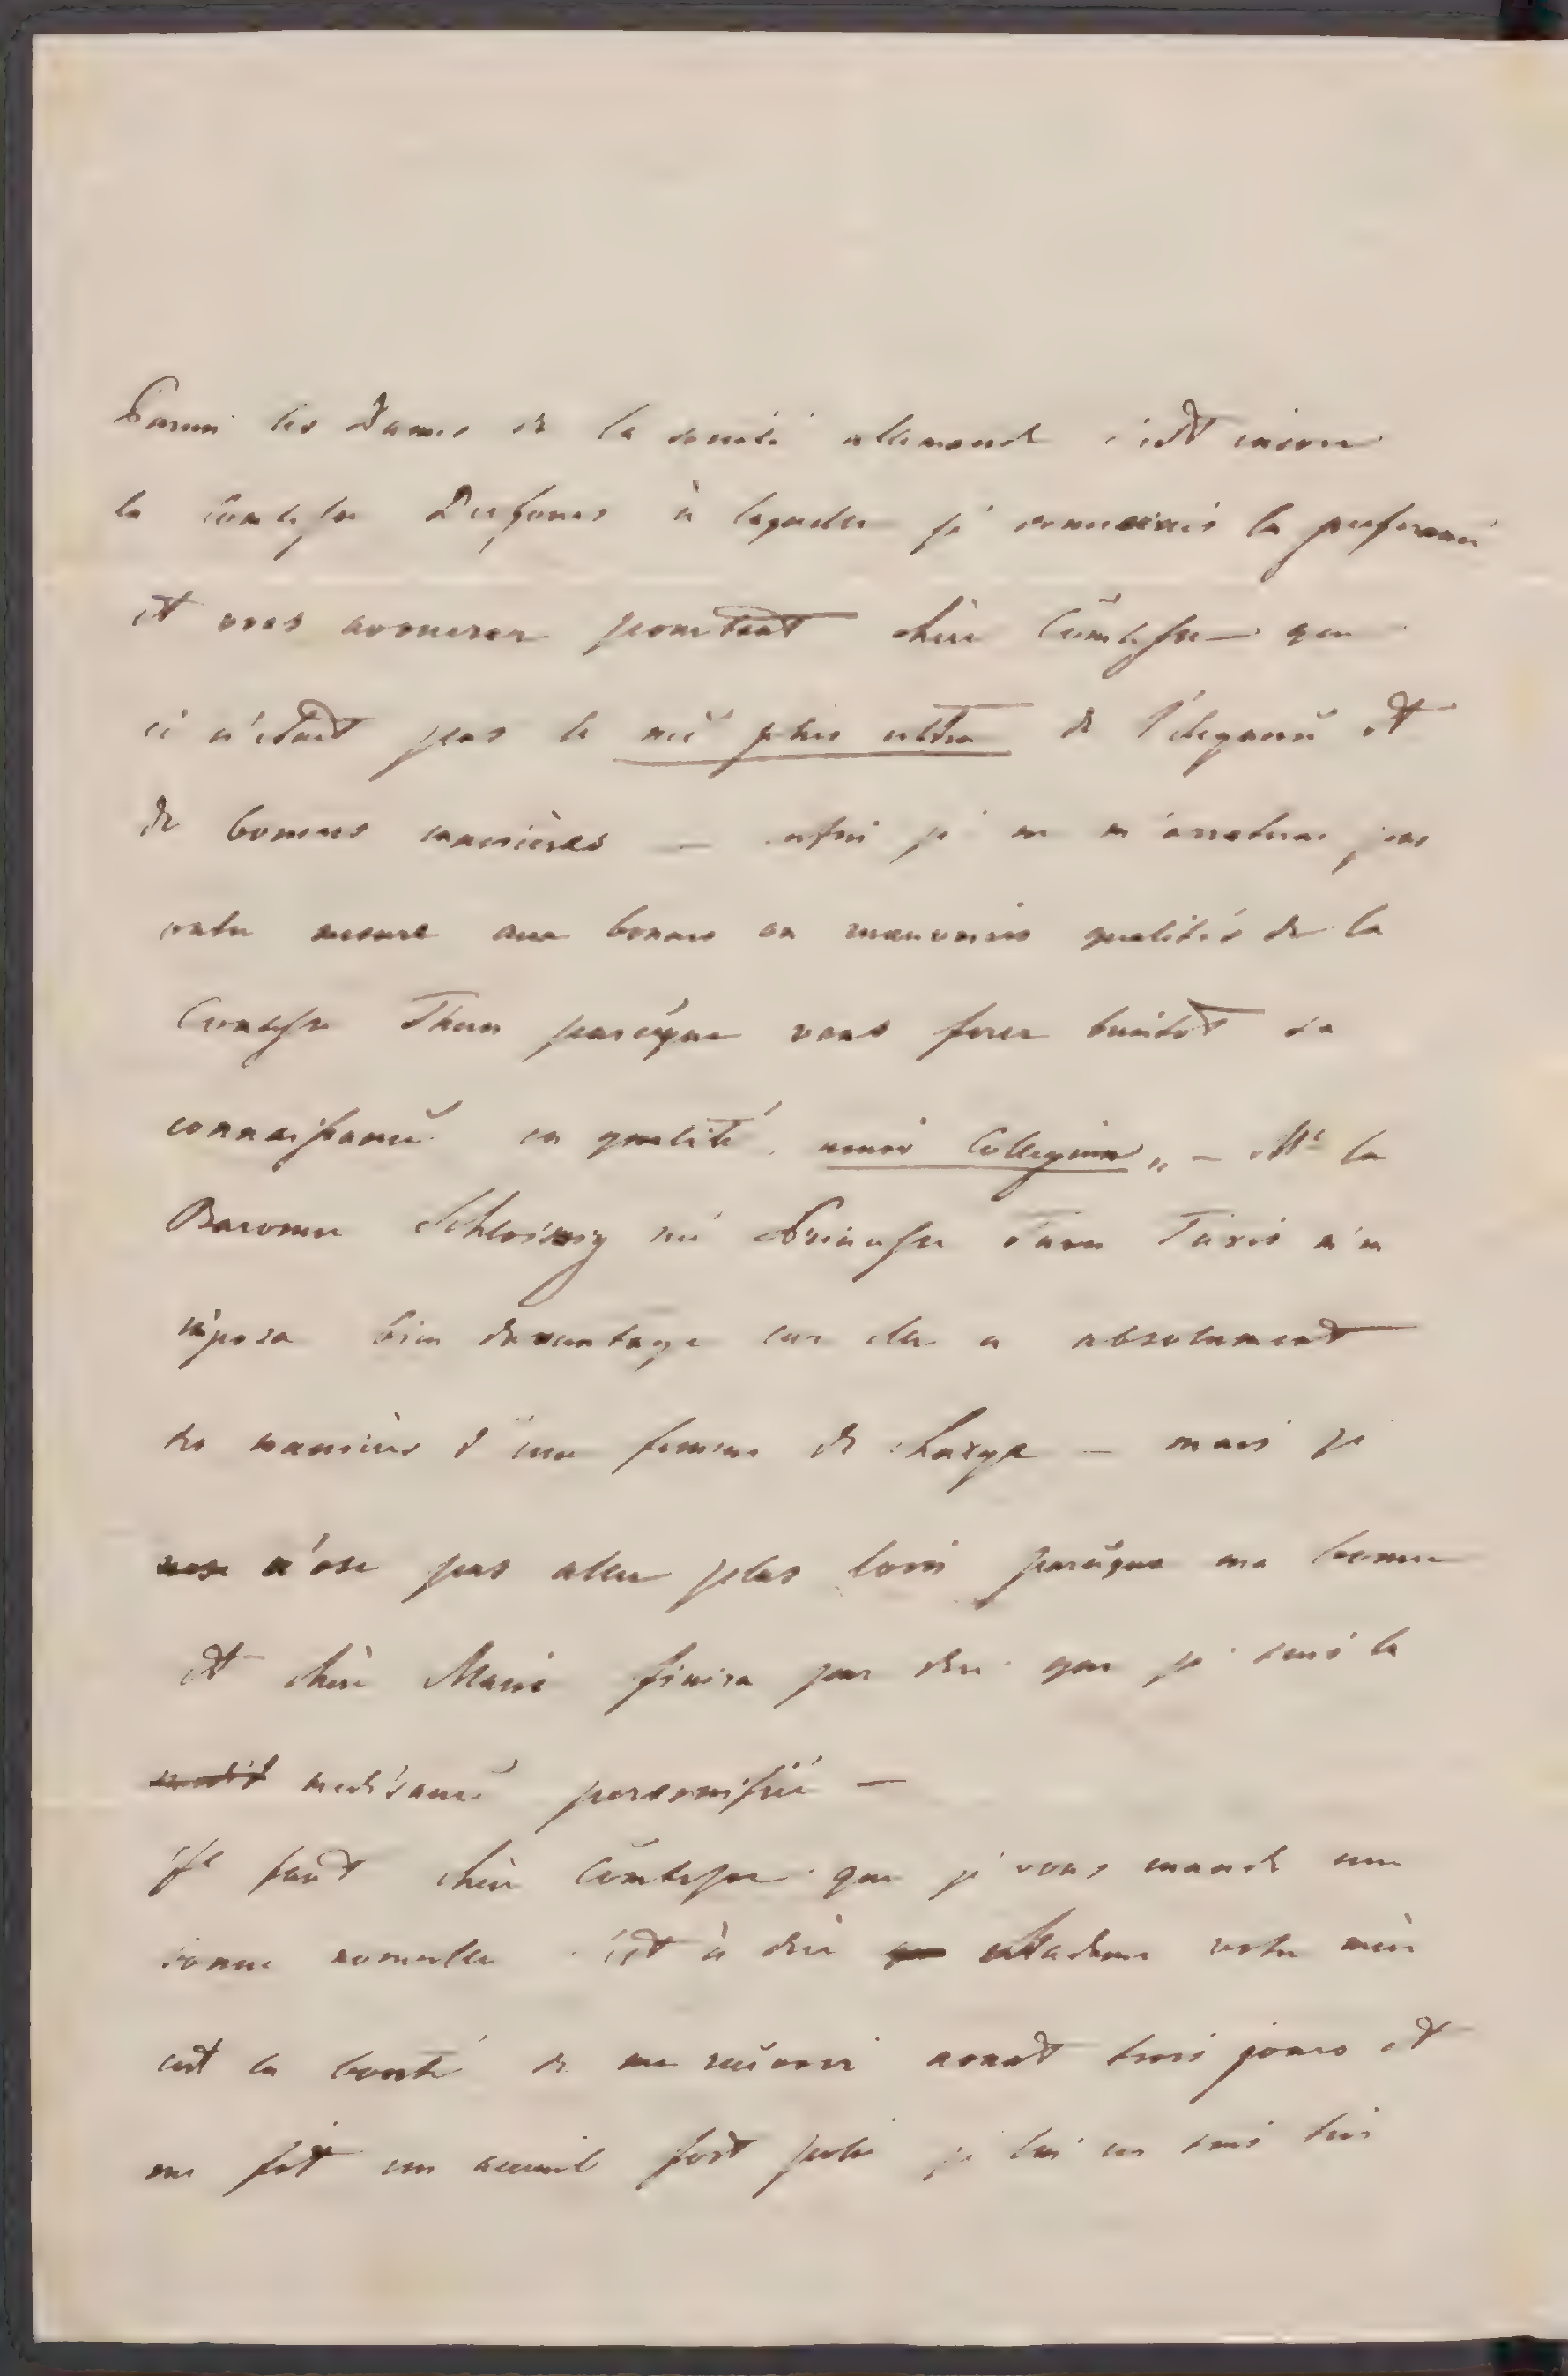 Parmi les Dames de la société alemande c'est encore
la Comtesse Desfours à laquelle je donnerais la preferance
et vous avouerez pourtant chère Comtesse que
ce n'etait pas le nec plus ultra de l'elegance et
de bonnes manières — je ne m'arreterai pas
outre mesure aux bonnes ou mauvaises qualités de la
Comtesse Thun parceque vous ferez bientôt sa
connaissance en qualité Collegin„ — Md la
Baronne née Princesse Turn Taxis m'en
imposa bien davantage car elle a absolument
les manières d'une femme de charge — mais je
n'ose pas aller plus loin parceque ma bonne
et chère Marie finira par dire que je suis la
medisance personifiée —
Il faut chère Comtesse que je vous mande une
bonne nouvelle c'est à dire Madame votre mère
eut la bonté de me recevoir avant trois jours et
me fit un acceuil fort poli je lui en suis très